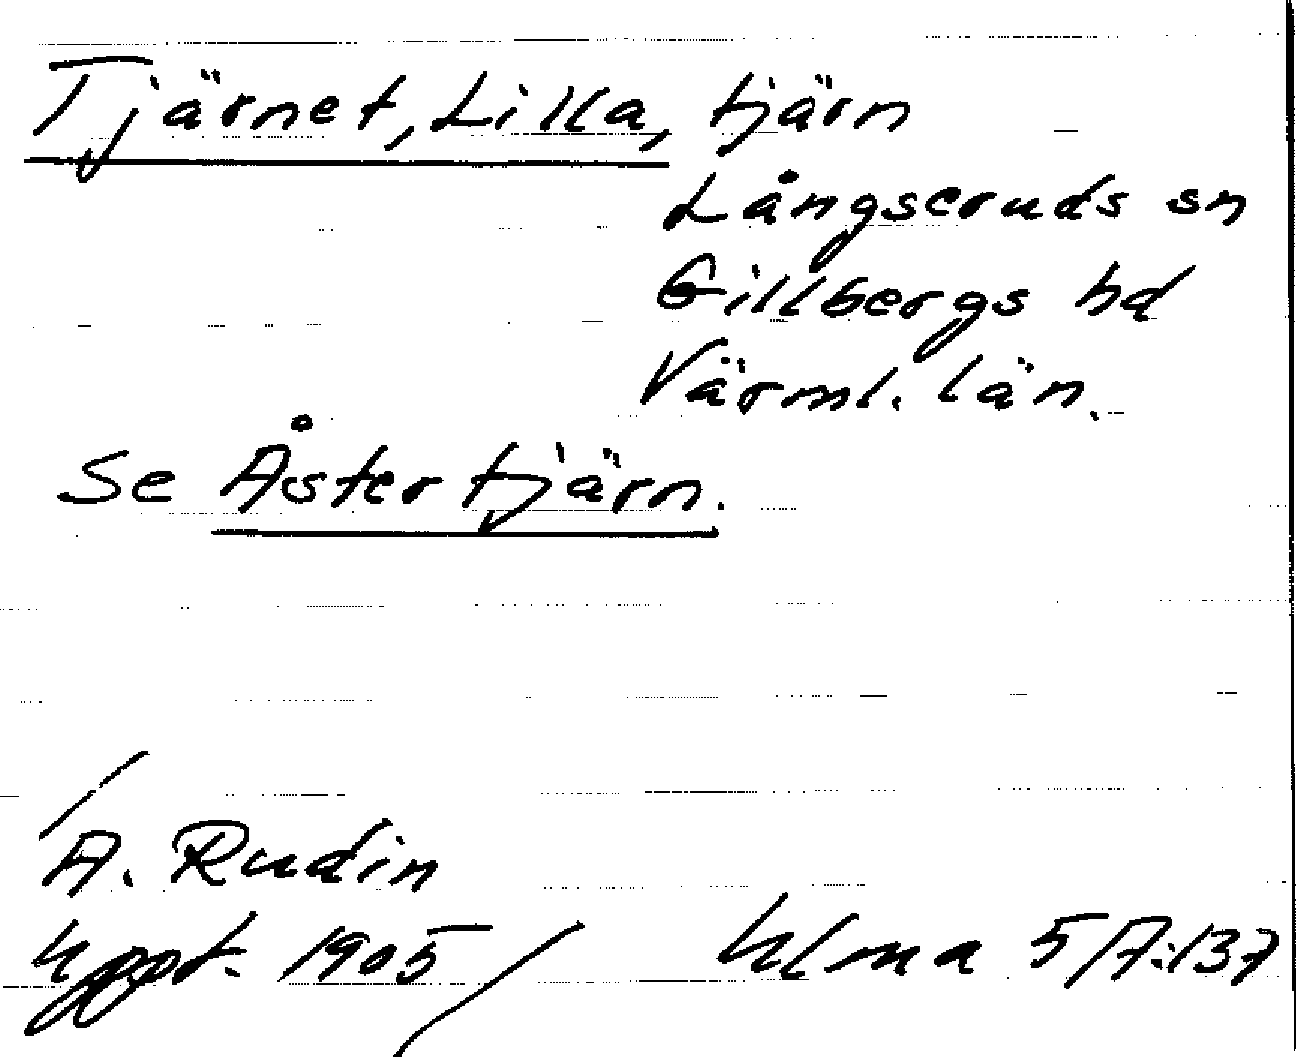 Tjärnet, Lilla, tjärn
Långseruds sn
Gillbergs hd
Värml. län.
Se Åstertjärn.
/
A. Rudin
uppt. 1905 / Ulma 5/7:137